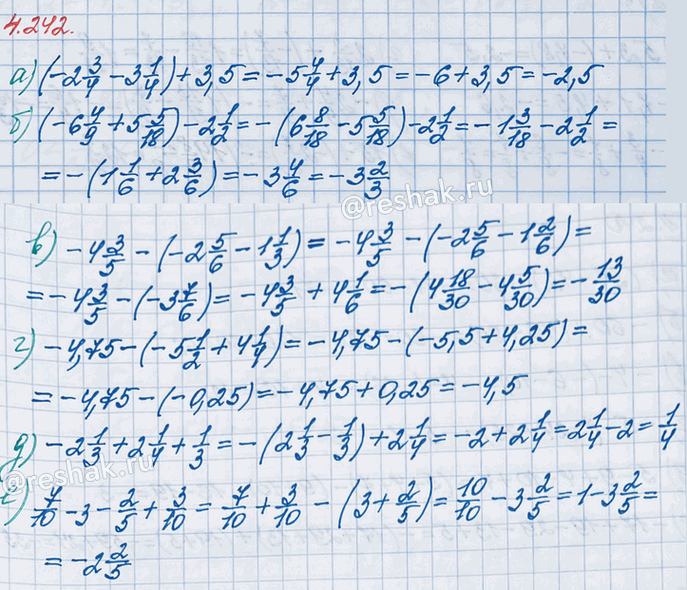 4.242.
а) (-2 3/4 - 3 1/4) + 3,5 = -5 4/4 + 3,5 = -6 + 3,5 = -2,5
б) (-6 4/9 + 5 5/18) - 2 1/2 = -(6 8/18 - 5 5/18) - 2 1/2 = -1 3/18 - 2 1/2 =
= -(1 1/6 + 2 3/6) = -3 4/6 = -3 2/3
@reshak.ru
в) -4 3/5 - (-2 5/6 - 1 1/3) = -4 3/5 - (-2 5/6 - 1 2/6) =
= -4 3/5 - (-3 7/6) = -4 3/5 + 4 1/6 = -(4 18/30 - 4 5/30) = -13/30
г) -4,75 - (-5 1/2 + 4 1/4) = -4,75 - (-5,5 + 4,25) =
= -4,75 - (-0,25) = -4,75 + 0,25 = -4,5
д) -2 1/3 + 2 1/4 + 1/3 = -(2 1/3 - 1/3) + 2 1/4 = -2 + 2 1/4 = 2 1/4 - 2 = 1/4
@reshak.ru
е) 7/10 - 3 - 2/5 + 3/10 = 7/10 + 3/10 - (3 + 2/5) = 10/10 - 3 2/5 = 1 - 3 2/5 =
= -2 2/5